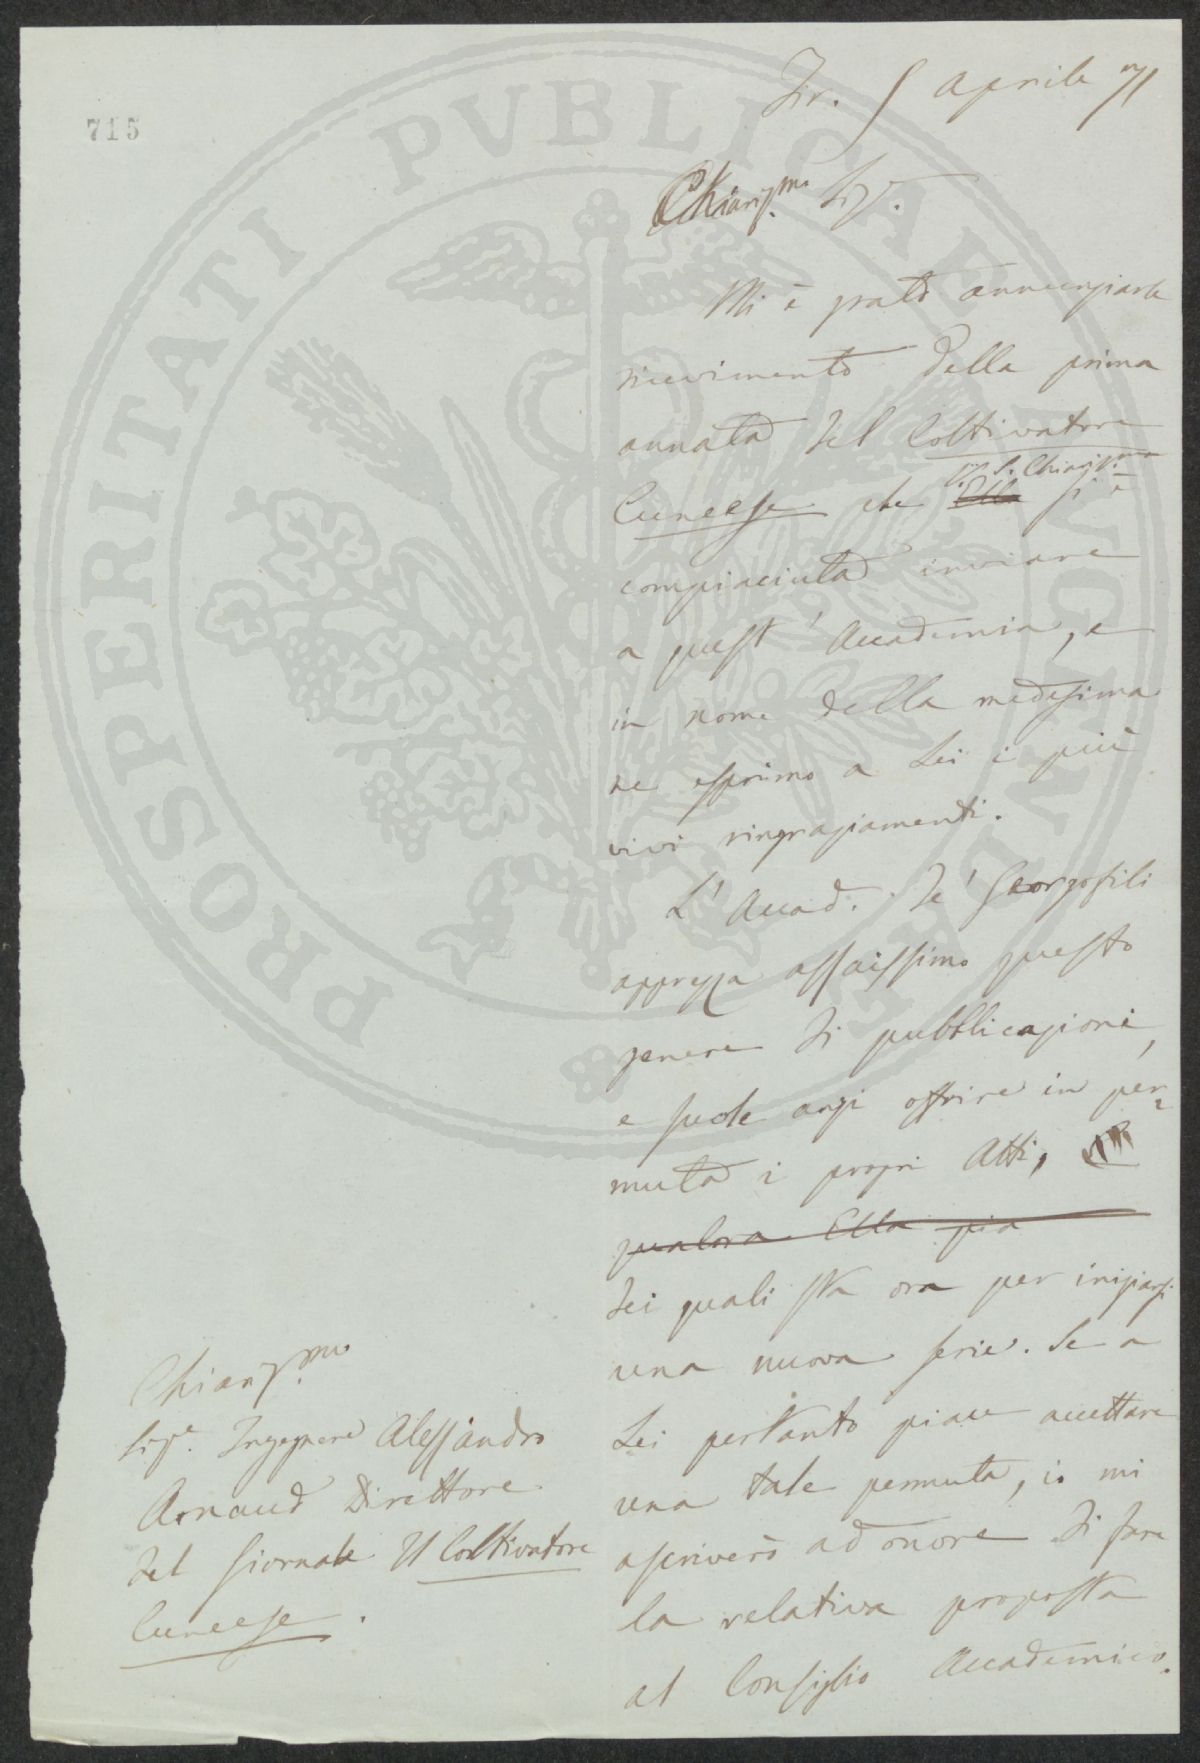 715
Fir. 5 Aprile 71
Chiariss.mo Sig.
Mi è grato annunziarle
ricevimento della prima
annata del Coltivatore
V. S. Chiariss.ma
Cuneese che Ella si è
compiaciuta inviare
a quest' Accademia, e
in nome della medesima
ne esprimo a Lei i più
vivi ringraziamenti.
L' Accad. de' Georgofili
apprezza assaissimo questo
genere di pubblicazioni,
e suole anzi offrire in per=
muta i propri Atti,
qualora Ella pia
dei quali sta ora per iniziarsi
una nuova serie. Se a
Lei pertanto piace accettare
una tale permuta, io mi
ascriverò ad onore di fare
la relativa proposta
al Consiglio Accademico.
Chiariss.mo
Sig.e Ingegnere Alessandro
Arnaud Direttore
del Giornale Il Coltivatore
Cuneese.
PROSPERITATI PVBLICAE AVGENDAE